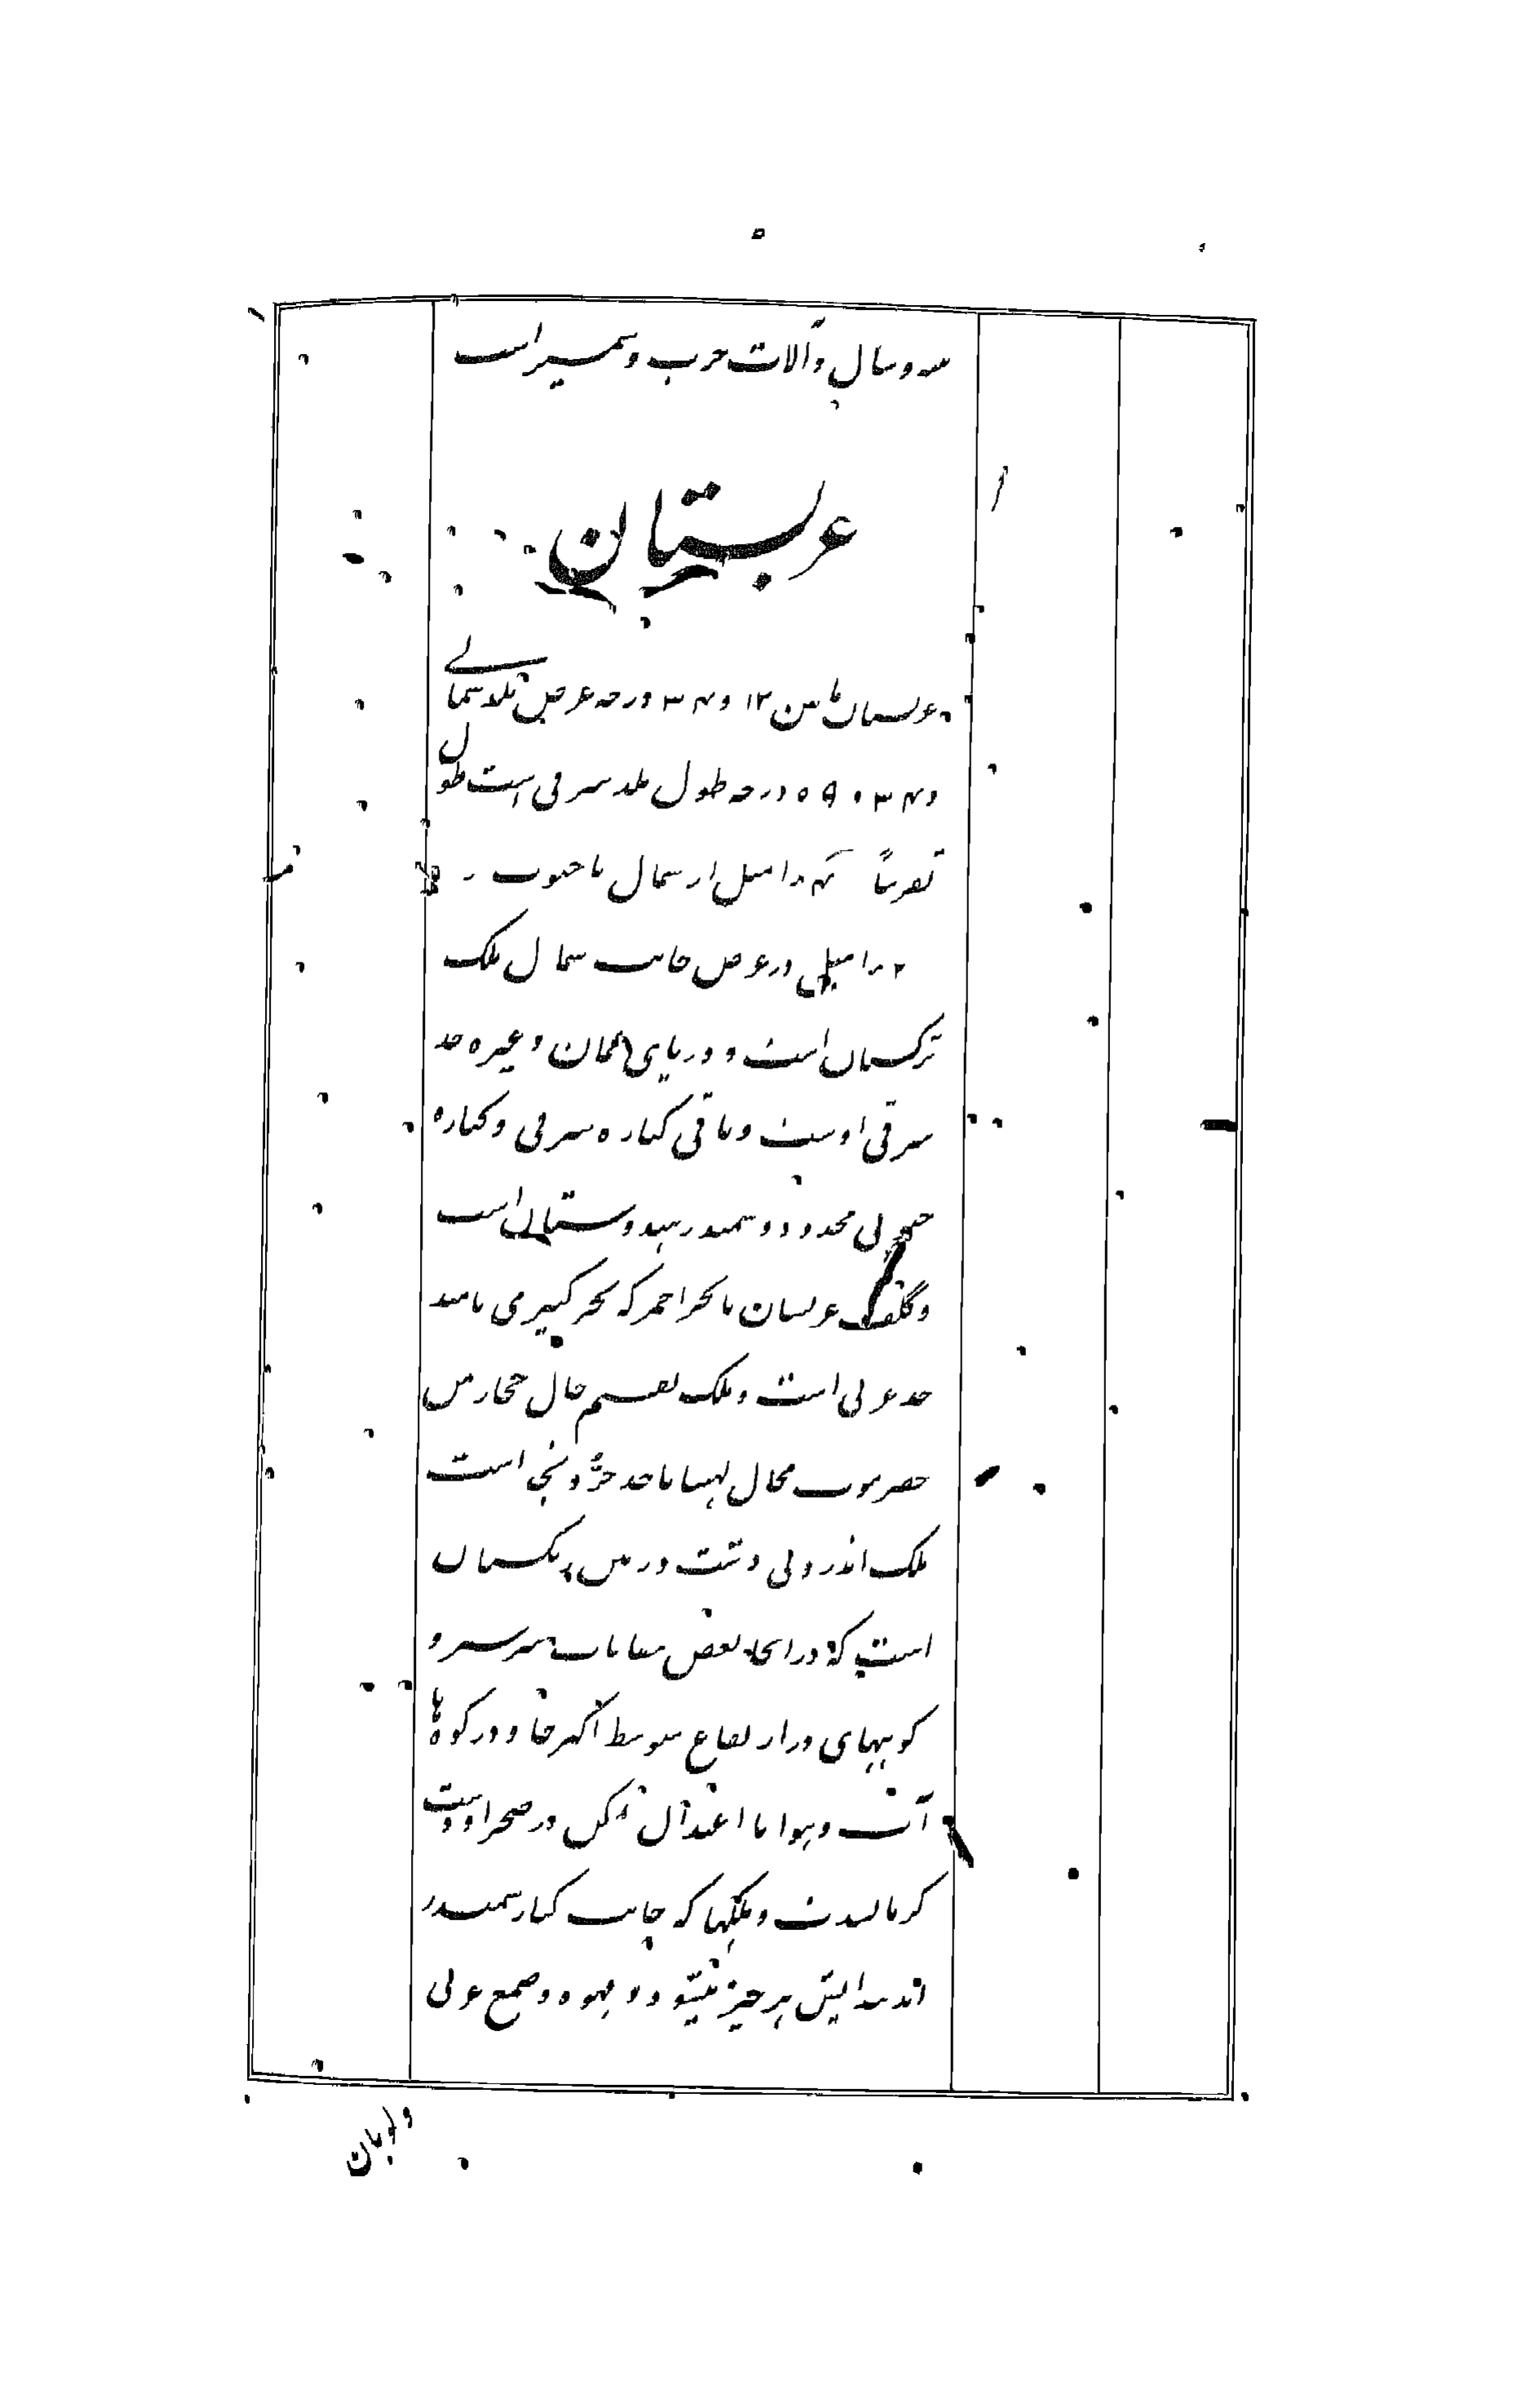 و آلات حرب و شمشیر است
عربستان
عربستان مابین ۱۲ و ۳۴ درجه عرض بلد شمالی
و ۳۴ و ۵۹ درجه طول بلد شرقی است طول
تقریباً میل از شمال تا جنوب
میل در عرض جانب شمال ملک
ترکستان است و دریای عمان و غیره حد
شرقی اوست و باقی کناره شرقی و کناره
جنوبی محدود و سمندر هندوستان است
و گلف عربستان یا بحر احمر که بحر می نامند
حد غربی است و ملک تقسیم حال حجاز یمن
حضرموت عمال لهسا تا حد و نجد است
ملک اندرونی دشت در میان ریگستان
است که در اینجا بعض مقامات سرسبز و
کوههای در ارتفاع متوسط اکثر جا و در کوه ها
آب و هوا با اعتدال لیکن در صحرا و دشت
گرما بشدت و ملکها که جانب کنار سمندر
اند پیدایش هر چیز و قهوه و صمغ عربی